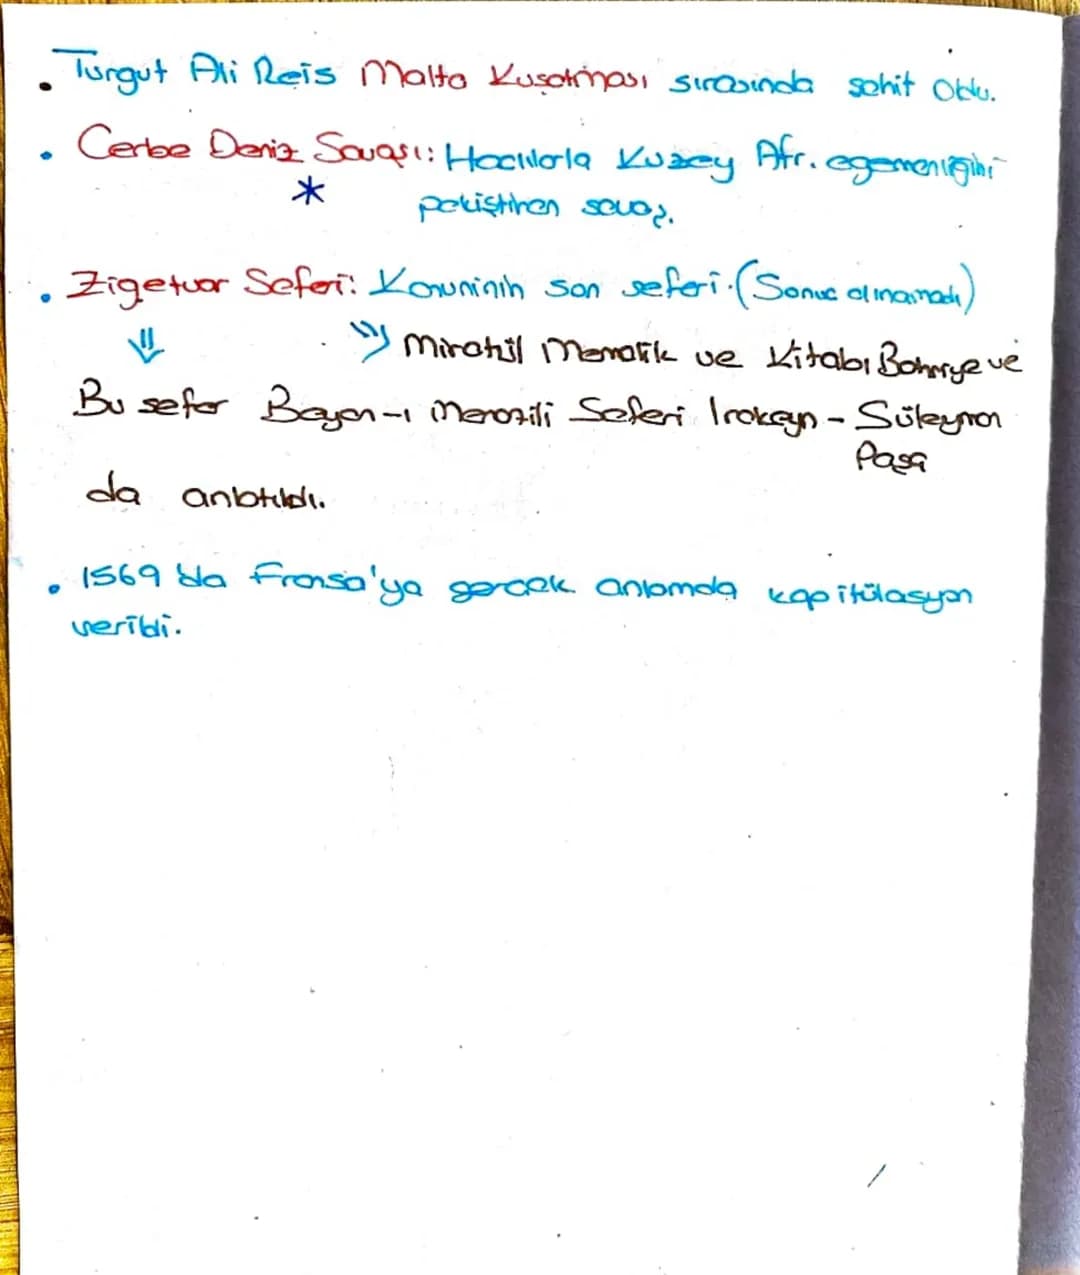 • Turgut Ali Reis Malta Kuşatması sırasında şehit oldu.
• Cerbe Deniz Savaşı: Haçlılarla Kuzey Afr. egemenliğini
* pekiştiren savaş.
• Zigetvar Seferi: Kanuninin son seferi. (Sonuç alınamadı)
⇓ ⇘ Miratül Memalik ve Kitabı Bahriye ve
Bu sefer Beyan-ı Menazili Seferi Irakeyn - Süleyman
Paşa
da anlatıldı.
• 1569'da Fransa'ya gerçek anlamda kapitülasyon
verildi.